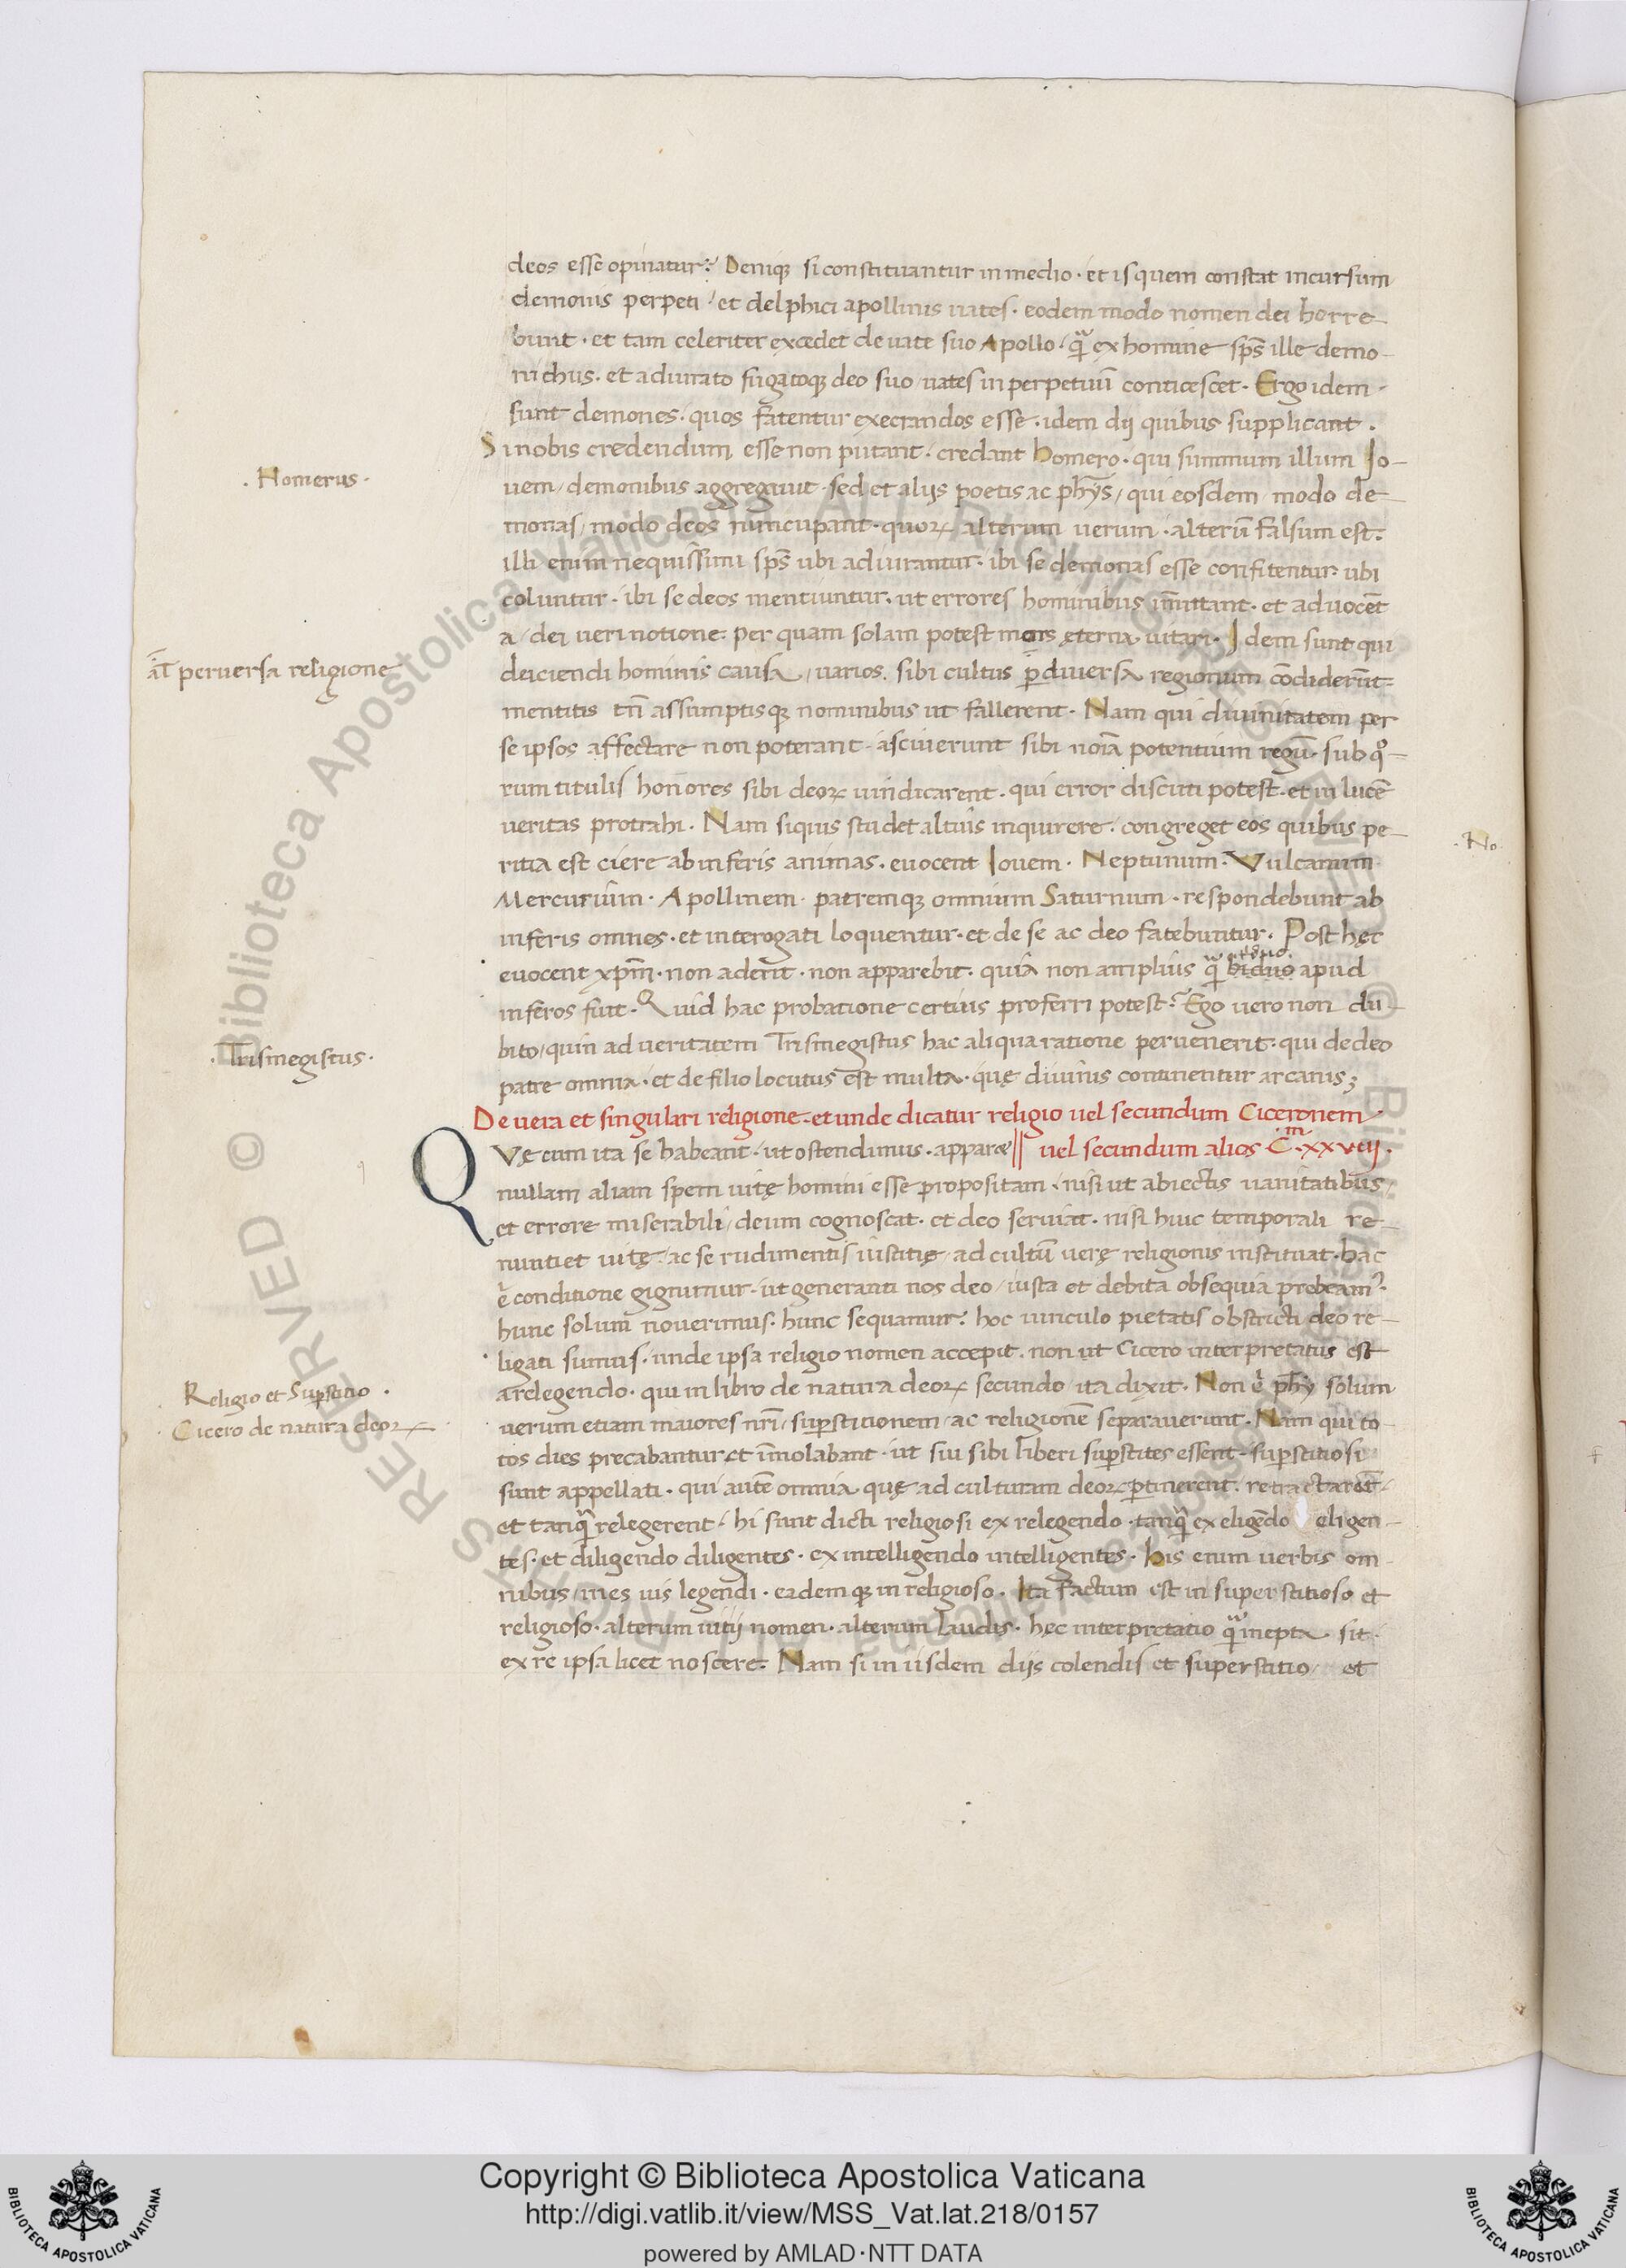 deos esse opinatur? Deniq; si constituantur in medio · et is quem constat incursum
demonis perpeti / et delphici apollinis vates · eodem modo nomen dei horre-
bunt · et tam celeriter excedet de vate suo Apollo · q̃ ex homine sp̄s ille demo-
nichus · et adiurato fugatoq; deo suo / vates in perpetuū conticescet · Ergo idem
sunt demones · quos fatentur execrandos esse · idem dij quibus supplicant ·
Si nobis credendum esse non putant · credant homero · qui summum illum Jo-
· Homerus ·
uem / demonibus aggregavit · sed et alijs poetis ac ph̄ys / qui eosdem / modo de-
monas / modo deos nuncupant · quoꝝ alterum verum · alterū falsum est.
illi enim nequissimi sp̄s ubi adiurantur · ibi se demonas esse confitentur · ubi
coluntur · ibi se deos mentiuntur · ut errores hominibus īmittant · et advocēt
a / dei veri notione · per quam solam potest mors ęterna vitari · Idem sunt qui
perversa religione
deiciendi hominis causa / varios sibi cultus ꝑ diversa regionum cōdiderūt
mentitis tn̄ assumptisq; nominibus ut fallerent · Nam qui divinitatem per
se ipsos affectare non poterant · asciverunt sibi noīa potentium regū · sub qͦ-
rum titulis honores sibi deoꝝ vindicarent · qui error discuti potest · et in lucē
veritas protrahi · Nam siquis studet altius inquirere / congreget eos quibus pe-
ritia est ciere ab inferis animas · evocent Iovem · Neptunum · Vulcanum
· No
Mercurium · Apollinem · patremq; omnium Saturnum · respondebunt ab
inferis omnes · et interogati loquentur · et de se ac deo fatebuntur · Post hęc
evocent xp̄m · non aderit · non apparebit · quia non amplius q̃ biduo apud
inferos fuit · Quid hac probatione certius proferri potest? Ego vero non du-
bito / quin ad veritatem Trismegistus hac aliqua ratione pervenerit · qui de deo
· Trismegistus ·
patre omnia · et de filio locutus est multa · quę divinis continentur arcanis;
De vera et singulari religione · et unde dicatur religio vel secundum Ciceronem
QVę cum ita se habeant · ut ostendimus · apparet || vel secundum alios C̄m · xxviij ·
nullam aliam spem vitę homini esse propositam · nisi ut abiectis vanitatibus /
et errore miserabili / deum cognoscat · et deo serviat · nisi huic temporali re-
nuntiet vitę / ac se rudimentis iusticię / ad cultū verę religionis instituat · hac
ē conditione gignimur · ut generanti nos deo / iusta et debita obsequia prebeam9 ·
hunc solum noverimus · hunc sequamur · hoc vinculo pietatis obstricti deo re-
ligati sumus · unde ipsa religio nomen accepit · non ut Cicero interpretatus est
a relegendo · qui in libro de natura deoꝝ secundo / ita dixit · Non ē ph̄y solum
Religio et Suꝑstitio ·
verum etiam maiores nr̄i / suꝑstitionem / ac religionē separaverunt · Nam qui to-
Cicero de natura deoꝝ
tos dies precabantur et īmolabant · ut sui sibi liberi suꝑstites essent · suꝑstitiosi
sunt appellati · qui autē omnia quę ad culturam deoꝝ ꝑtinerent · retractarēt /
et tanq̃ relegerent · hi sunt dicti religiosi ex relegendo · tanq̃ ex eligēdo eligen-
tes · et diligendo diligentes · ex intelligendo intelligentes · His enim verbis om-
nibus / ines vis legendi · eademq; in religioso · Ita factum est in superstitioso et
religioso · alterum vitij nomen · alterum laudis · hęc interpretatio q̃ inepta sit ·
ex re ipsa licet noscere · Nam si in iisdem dijs colendis et superstitio / et
Copyright © Biblioteca Apostolica Vaticana
http://digi.vatlib.it/view/MSS_Vat.lat.218/0157
powered by AMLAD·NTT DATA
BIBLIOTECA APOSTOLICA VATICANA
BIBLIOTECA APOSTOLICA VATICANA